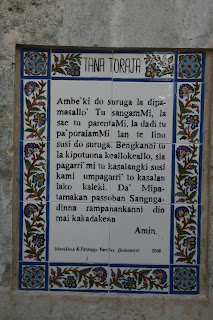 TANA TORAJA
Ambe'ki do suruga la dipa-
masallo' Tu sangamMi, la
sae tu parentaMi, la dadi tu
pa'poraiamMi lan te lino
susi do suruga. Bengkanni tu
la kipotuona keallokeallo, sia
pagarri'mi tu kasalangki susi
kami umpagarri' to kasalan
lako kaleki. Da' Mipa-
tamakan passoban Sangnga-
dinna rampanankanni dio
mai kakadakean
Amin.
2000